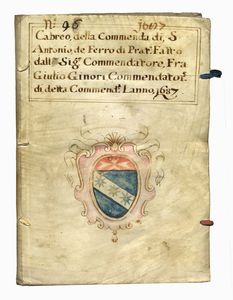 N: 96 1687
Cabreo, della Commenda di, S
Antonio, de Ferro di Prat: Fatto
dall Sig: Commendatore, Fra
Giulio Ginori Commendator:
di detta Commend: Lanno, 1687